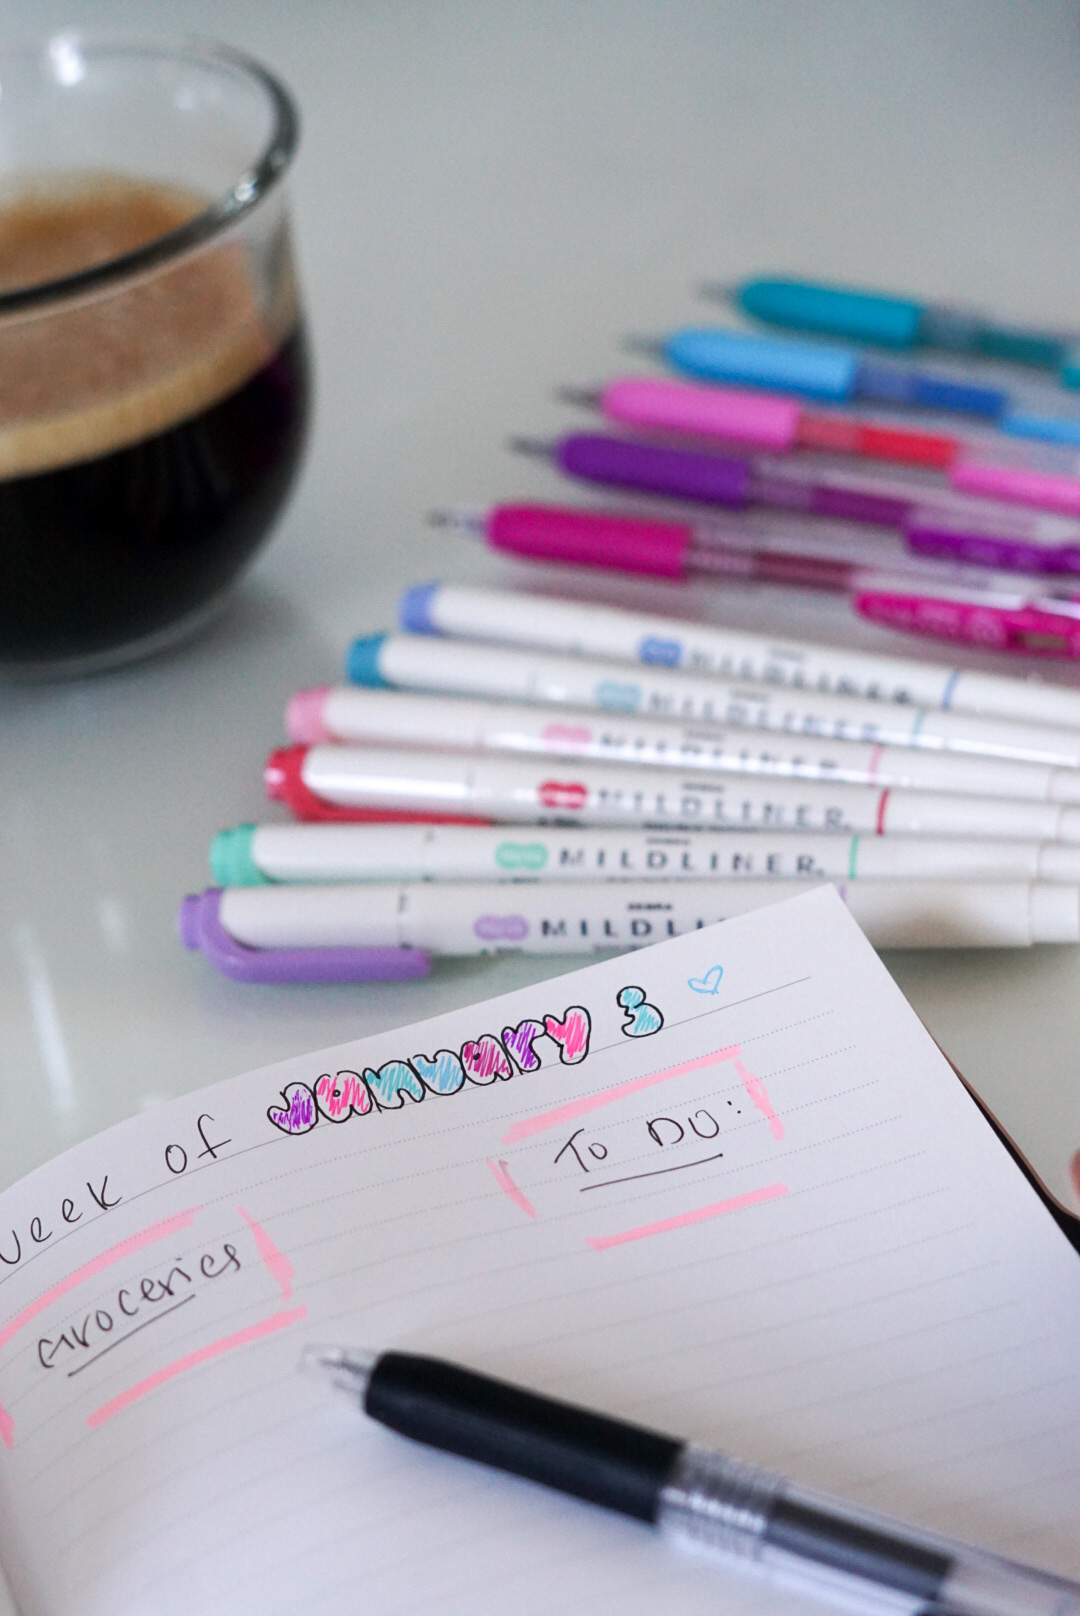 MILDLINER
MILDLINER
MILDLINER
ZEBRA
MILDLINER
MILDLINER
ZEBRA
MILDLI
week of January 3
To Do:
Groceries